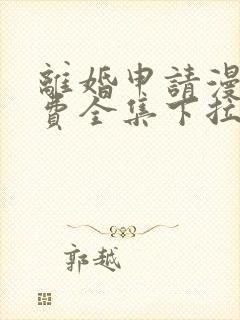 離婚申請漫
費全集下拉
郭越